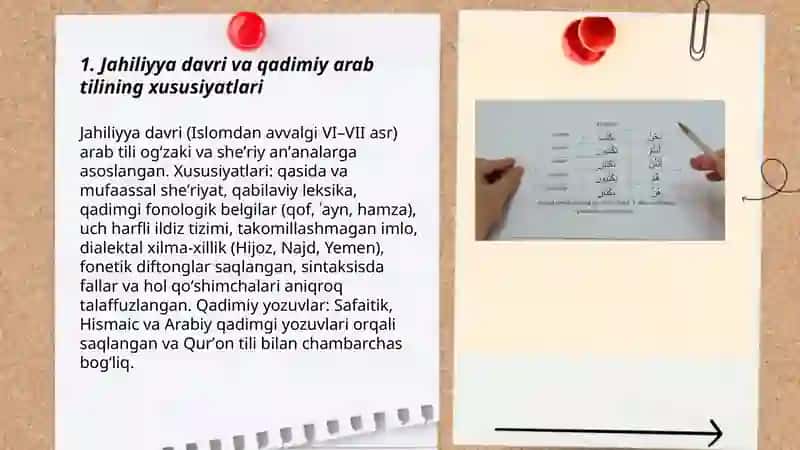 1. Jahiliyya davri va qadimiy arab
tilining xususiyatlari
Jahiliyya davri (Islomdan avvalgi VI–VII asr)
arab tili og‘zaki va she’riy an’analarga
asoslangan. Xususiyatlari: qasida va
mufaassal she’riyat, qabilaviy leksika,
qadimgi fonologik belgilar (qof, ʿayn, hamza),
uch harfli ildiz tizimi, takomillashmagan imlo,
dialektal xilma-xillik (Hijoz, Najd, Yemen),
fonetik diftonglar saqlangan, sintaksisda
fallar va hol qo‘shimchalari aniqroq
talaffuzlangan. Qadimiy yozuvlar: Safaitik,
Hismaic va Arabiy qadimgi yozuvlari orqali
saqlangan va Qur’on tili bilan chambarchas
bog‘liq.
نكتب نحن
أنتم
أنتن
هم
هن